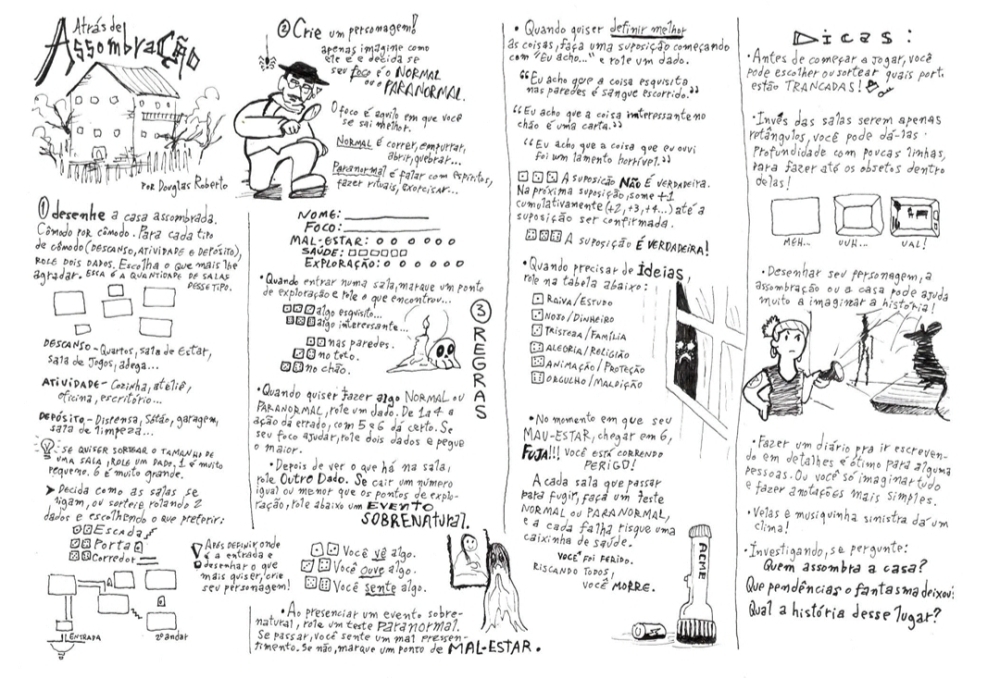 Atrás de
Assombração
Por Douglas Roberto
① desenhe a casa assombrada.
Cômodo por cômodo. Para cada tipo
de cômodo (Descanso, Atividade e Depósito),
role dois dados. Escolha o que mais lhe
agradar. Essa é a quantidade de salas
desse tipo.
Descanso - Quartos, sala de Estar,
sala de Jogos, adega...
Atividade - Cozinha, ateliê,
oficina, escritório...
Depósito - Dispensa, Sótão, garagem,
sala de limpeza...
Se quiser sortear o tamanho de
uma sala, role um dado. 1 é muito
pequeno. 6 é muito grande.
➤ Decida como as salas se
ligam, ou sorteie rolando 2
dados e escolhendo o que preferir:
Escada
Porta
Corredor
Entrada
2º andar
Após definir onde
é a entrada e
desenhar o que
mais quiser, crie
seu personagem!
② Crie um personagem!
apenas imagine como
ele é e decida se
seu foco é o Normal
ou o Paranormal.
O foco é aquilo em que você
se sai melhor.
Normal é correr, empurrar,
abrir, quebrar...
Paranormal é falar com espíritos,
fazer rituais, exorcizar...
Nome:
Foco:
Mal-estar: o o o o o o
Saúde: □□□□□□
Exploração: o o o o o o
③ REGRAS
• Quando entrar numa sala, marque um ponto
de exploração e role o que encontrou...
algo esquisito...
algo interessante...
nas paredes.
no teto.
no chão.
• Quando quiser fazer algo Normal ou
Paranormal, role um dado. De 1 a 4 a
ação dá errado, com 5 e 6 dá certo. Se
seu foco ajudar, role dois dados e pegue
o maior.
• Depois de ver o que há na sala,
role Outro Dado. Se cair um número
igual ou menor que os pontos de explo-
ração, role abaixo um Evento
Sobrenatural.
Você vê algo.
Você ouve algo.
Você sente algo.
• Ao presenciar um evento sobre-
natural, role um teste Paranormal.
Se passar, você sente um mal pressen-
timento. Se não, marque um ponto de Mal-Estar.
• Quando quiser definir melhor
as coisas, faça uma suposição começando
com "Eu acho..." e role um dado.
"Eu acho que a coisa esquisita
nas paredes é sangue escorrido."
"Eu acho que a coisa interessante no
chão é uma carta."
"Eu acho que a coisa que eu ouvi
foi um lamento horrível."
A suposição NÃO é verdadeira.
Na próxima suposição, some +1
cumulativamente (+2, +3, +4...) até a
suposição ser confirmada.
A suposição é verdadeira!
• Quando precisar de ideias,
role na tabela abaixo:
Raiva/Estudo
Nojo/Dinheiro
Tristeza/Família
Alegria/Religião
Animação/Proteção
Orgulho/Maldição
• No momento em que seu
Mau-estar, chegar em 6,
FUJA!!! Você está correndo
perigo!
A cada sala que passar
para fugir, faça um teste
Normal ou Paranormal,
e a cada falha risque uma
caixinha de saúde.
Você foi ferido.
Riscando todos,
você morre.
ACME
Dicas:
• Antes de começar a jogar, você
pode escolher ou sortear quais port.
estão TRANCADAS!
• Invés das salas serem apenas
retângulos, você pode dá-las
profundidade com poucas linhas,
para fazer até os objetos dentro
delas!
Meh...
Uuh...
Uau!
• Desenhar seu personagem, a
assombração ou a casa pode ajuda
muito a imaginar a história!
• Fazer um diário pra ir escreven-
do em detalhes é ótimo para alguma
pessoas. Ou você só imaginar tudo
e fazer anotações mais simples.
• Velas e musiquinha sinistra dá um
clima!
• Investigando, se pergunte:
Quem assombra a casa?
Que pendências o fantasma deixou?
Qual a história desse lugar?